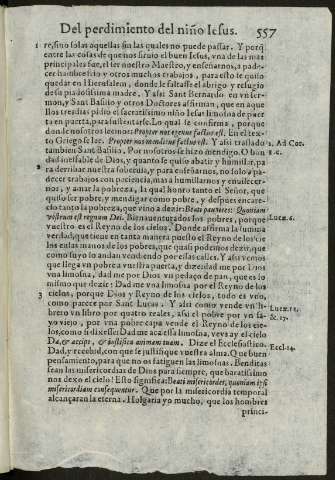 Del perdimiento del niño Iesus. 557
1 re, sino solas aquellas sin las quales no puede passar. Y porq̃
entre las cosas de que nos siruio el buen Iesus, vna de las mas
principales fue, el ser nuestro Maestro, y enseñarnos, a pade-
cer hambre frio y otros muchos trabajos, para esto le quiso
quedar en Hierusalem, donde le faltasse el abrigo y refugio
de su piadosissima madre. Y assi Sant Bernardo en vn ser-
mon, y Sant Basilio y otros Doctores affirman, que en aque
llos tres dias pidio el sacratissimo niño Iesus limosna de puer
ta en puerta, para sustentarse. Lo qual se confirma, porque
donde nosotros leemos: Propter nos egenus factus est. En el tex-
to Griego se lee. Propter nos mendicus factus est. Y assi traslado
2. Ad Cor.
tambien Sant Basilio. Por nosotros se hizo mendigo. O bon
8. c.
dad inefable de Dios, y quanto se quiso abatir y humillar, pa
2 ra derribar nuestra soberuia, y para enseñarnos, no solo a pa-
decer trabajos con paciencia, mas a humillarnos y enuilecer-
nos, y amar la pobreza, la qual honro tanto el Señor, que
quiso ser pobre, y mendigar como pobre, y despues encare-
cio tanto la pobreza, que vino a dezir: Beati pauperes: Quoniam
vestrum est regnum Dei. Bienauenturados los pobres, porque
Luc. 6.
vuestro es el Reyno de los cielos. Donde affirma la summa
verdad, que tiene en tanta manera puesto el Reyno de los cie
los en las manos de los pobres, que quasi podemos dezir, que
como suyo lo andan vendiendo por essas calles. Y assi vemos
que llega vn pobre a vuestra puerta, y dize dad me por Dios
vna limosna, dad me por Dios vn pedaço de pan, que es lo
mismo que dezir: Dad me vna limosna por el Reyno de los
3 cielos, porque Dios y Reyno de los cielos, todo es vno,
como parece por Sant Lucas. Y assi como vende vn li-
Luc. 11.
brero vn libro por quatro reales, assi el pobre por vn sa-
& 17.
yo viejo, por vna pobre capa vende el Reyno de los cie-
los, como si dixesse: Dad me aca essa limosna, veys ay el cielo
Da, & accipe, & iustifica animam tuam. Dize el Ecclesiastico.
Eccl. 14.
Dad, y recebid, con que se justifique vuestra alma. Que buen
pensamiento, para que no os fatiguen las limosnas. Benditas
sean las misericordias de Dios para siempre, que baratissimo
nos dexo el cielo! Esto significa: Beati misericordes, quoniam ipsi
misericordiam consequentur. Que por la misericordia temporal
alcançaran la eterna. Holgaria yo mucho, que los hombres
princi-